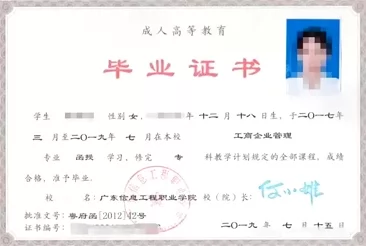 成人高等教育
毕业证书
学生 性别 女, 十二月 十八日生, 于二〇一七年
三 月至二〇一九年 七 月在本校 工商企业管理
专业 函授 学习, 修完 专 科教学计划规定的全部课程, 成绩
合格, 准予毕业。
校 名: 广东信息工程职业学院 校(院)长:
批准文号: 粤府函[2012]42号
证书编号: 二〇一九年 七 月 十五 日